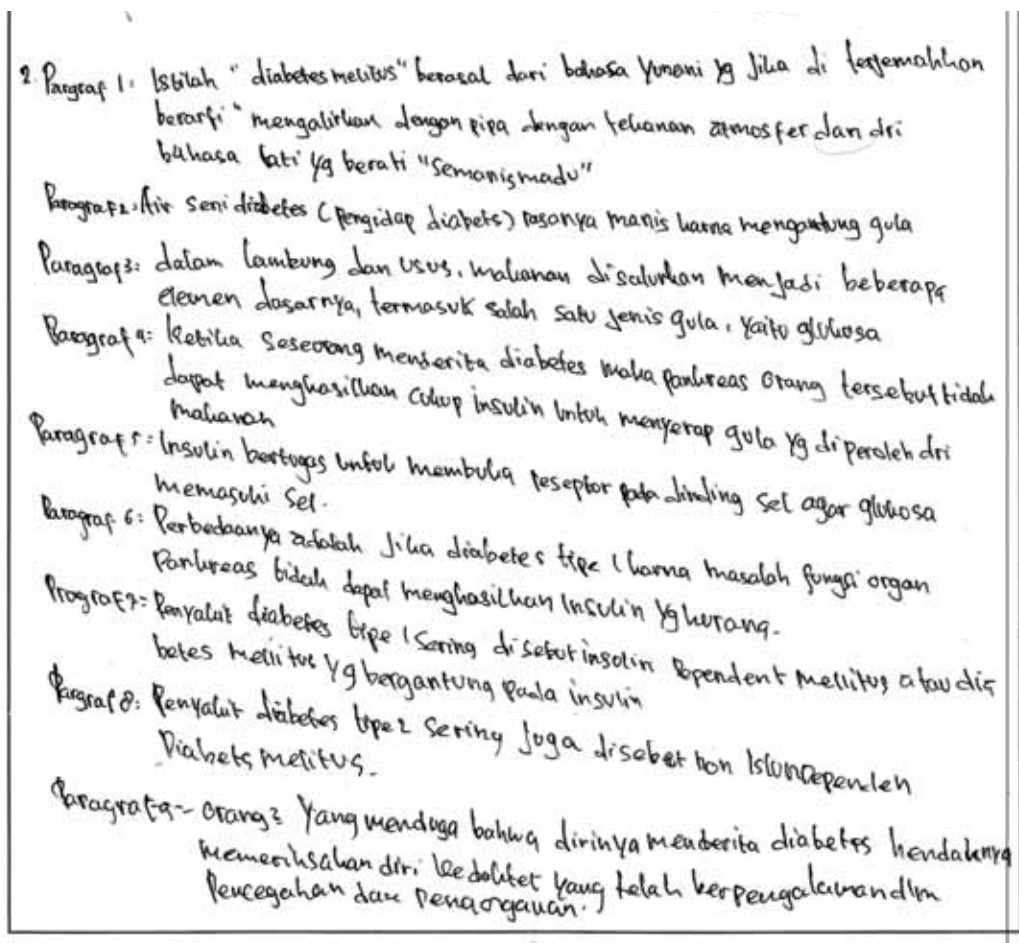 2. Pargraf 1: Istilah "diabetes melitus" berasal dari bahasa Yunani yg jika di terjemahkan
berarti "mengalirkan dengan pipa dengan tekanan atmosfer dan dri
bahasa lati yg berati "semanis madu"
Paragraf 2: Air seni diabetes (pengidap diabets) rasanya manis karna mengantung gula
Paragraf 3: dalam lambung dan usus, makanan disalurkan menjadi beberapa
elemen dasarnya, termasuk salah satu jenis gula, yaitu glukosa
Paragraf 4: Ketika seseorang menderita diabetes maka pankreas orang tersebut tidak
dapat menghasilkan cukup insulin untuk menyerap gula yg diperoleh dri
makanan
Paragraf 5: Insulin bertugas untuk membuka reseptor pada dinding sel agar glukosa
memasuki sel.
Paragraf 6: Perbedaanya adalah jika diabetes tipe 1 karna masalah fungsi organ
Pankreas tidak dapat menghasilkan insulin yg kurang.
Prograf 7: Penyakit diabetes tipe 1 sering disebut insolin Dependent mellitus atau dia
betes mellitus yg bergantung pada insulin
Pargraf 8: Penyakit diabetes tipe 2 sering juga disebet non
Diabets melitus.
Paragraf 9 - orang2 yang menduga bahwa dirinya menderita diabetes hendaknya
memeriksakan diri kedokter yang telah berpengalaman dlm
Pencegahan dan